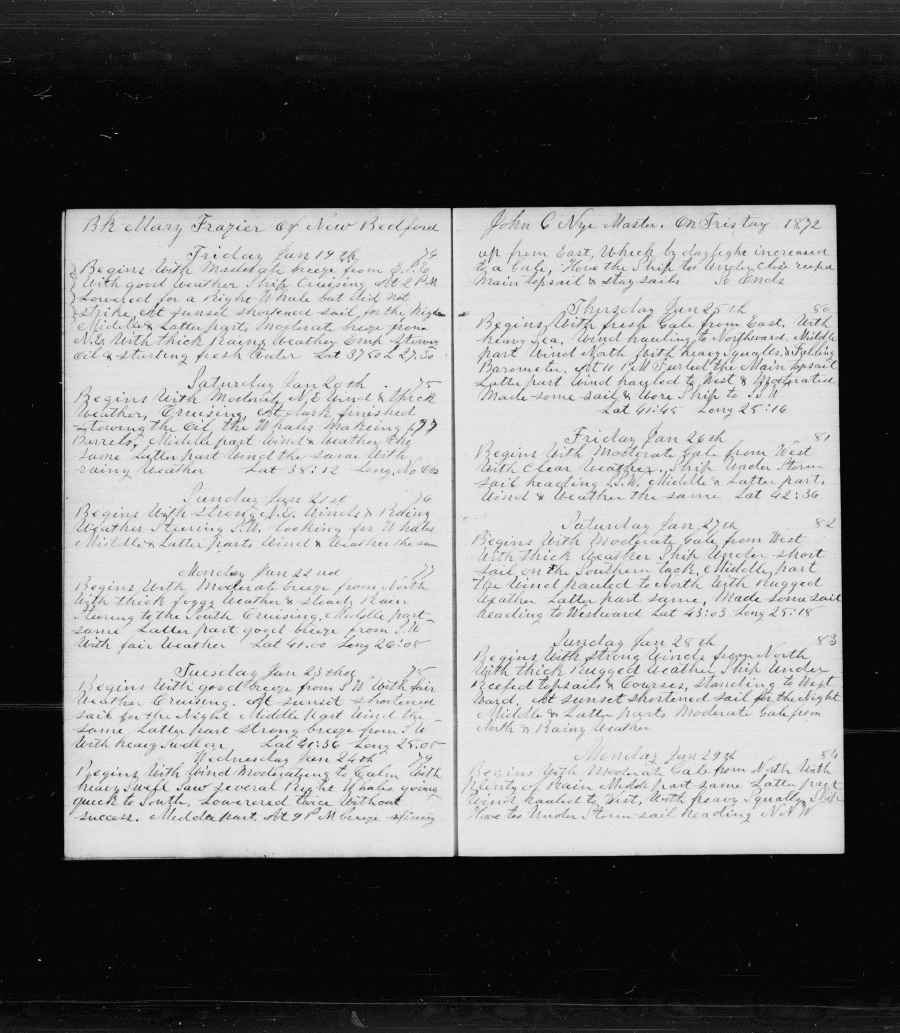 Bk Mary Frazier of New Bedford
Friday Jan 19th 74
Begins With Moderate breeze from E.S.E
With good Weather Ship Cruising At 2 PM
Lowered for a Right Whale but did not
strike At sunset shortened sail for the Night
Middle & Latter parts Moderate breeze from
N.E. With thick Rainy Weather Emp Stowing
Oil & starting fresh Water Lat 37:50 L 27:30
Saturday Jan 20th 75
Begins With Moderate N.E Wind & thick
Weather, Cruising, At dark finished
Stowing the Oil, the Whales Makeing 197
Barrels, Middle part Wind & Weather the
same Latter part Wind the same With
rainy Weather Lat 38:12 Long No Obs
Sunday Jan 21st 76
Begins With strong N.E. Winds & Rainy
Weather Steering S.W. looking for Whales
Middle & Latter parts Wind & Weather the same
Monday Jan 22nd 77
Begins With Moderate breeze from North
With thick foggy Weather & steady Rain
Steering to the South Cruising, Middle part
same Latter part good breeze from S.W
With fair Weather Lat 41:00 Long 26:08
Tuesday Jan 23rd 78
Begins With good breeze from S W With fair
Weather Cruising. At sunset shortened
sail for the Night Middle part Wind the
same Latter part strong breeze from S W
With heavy swell on Lat 41:36 Long 25:05
Wednesday Jan 24th 79
Begins With Wind Moderating to Calm With
heavy Swell Saw several Right Whales going
quick to South. Lowered twice Without
success. Middle part. At 9 PM breeze spring
John C Nye Master. On Tristay 1872
up from East, Which by daylight increased
to a Gale, Hove the Ship too Under Close reefed
Main topsail & staysails So Ends
Thursday Jan 25th 80
Begins With fresh Gale from East, With
heavy Sea, Wind hauling to Northward, Middle
part Wind North With heavy Squalls & Falling
Barometer. At 11 PM Furled the Main topsail
Latter part Wind hauled to West & Moderated
Made some sail & Wore Ship to S.S.W
Lat 41:45 Long 25:16
Friday Jan 26th 81
Begins With Moderate Gale from West
With Clear Weather, Ship Under Storm
sail heading S.S.W. Middle & Latter part,
Wind & Weather the same Lat 42:36
Saturday Jan 27th 82
Begins With Moderate Gale from West
With thick Weather Ship Under short
sail on the Southern tack, Middle part
the Wind hauled to North With Rugged
Weather Latter part same, Made some sail
heading to Westward Lat 43:03 Long 25:18
Sunday Jan 28th 83
Begins With Strong Winds from North
With thick Rugged Weather, Ship Under
Reefed topsails & Courses, Standing to West
Ward, At sunset shortened sail for the Night
Middle & Latter parts Moderate Gale from
North & Rainy Weather
Monday Jan 29th 84
Begins With Moderate Gale from North With
Plenty of Rain Middle part same Latter part
Wind hauled to West, With heavy Squalls, Ship
Hove too Under Storm sail heading N.N.W